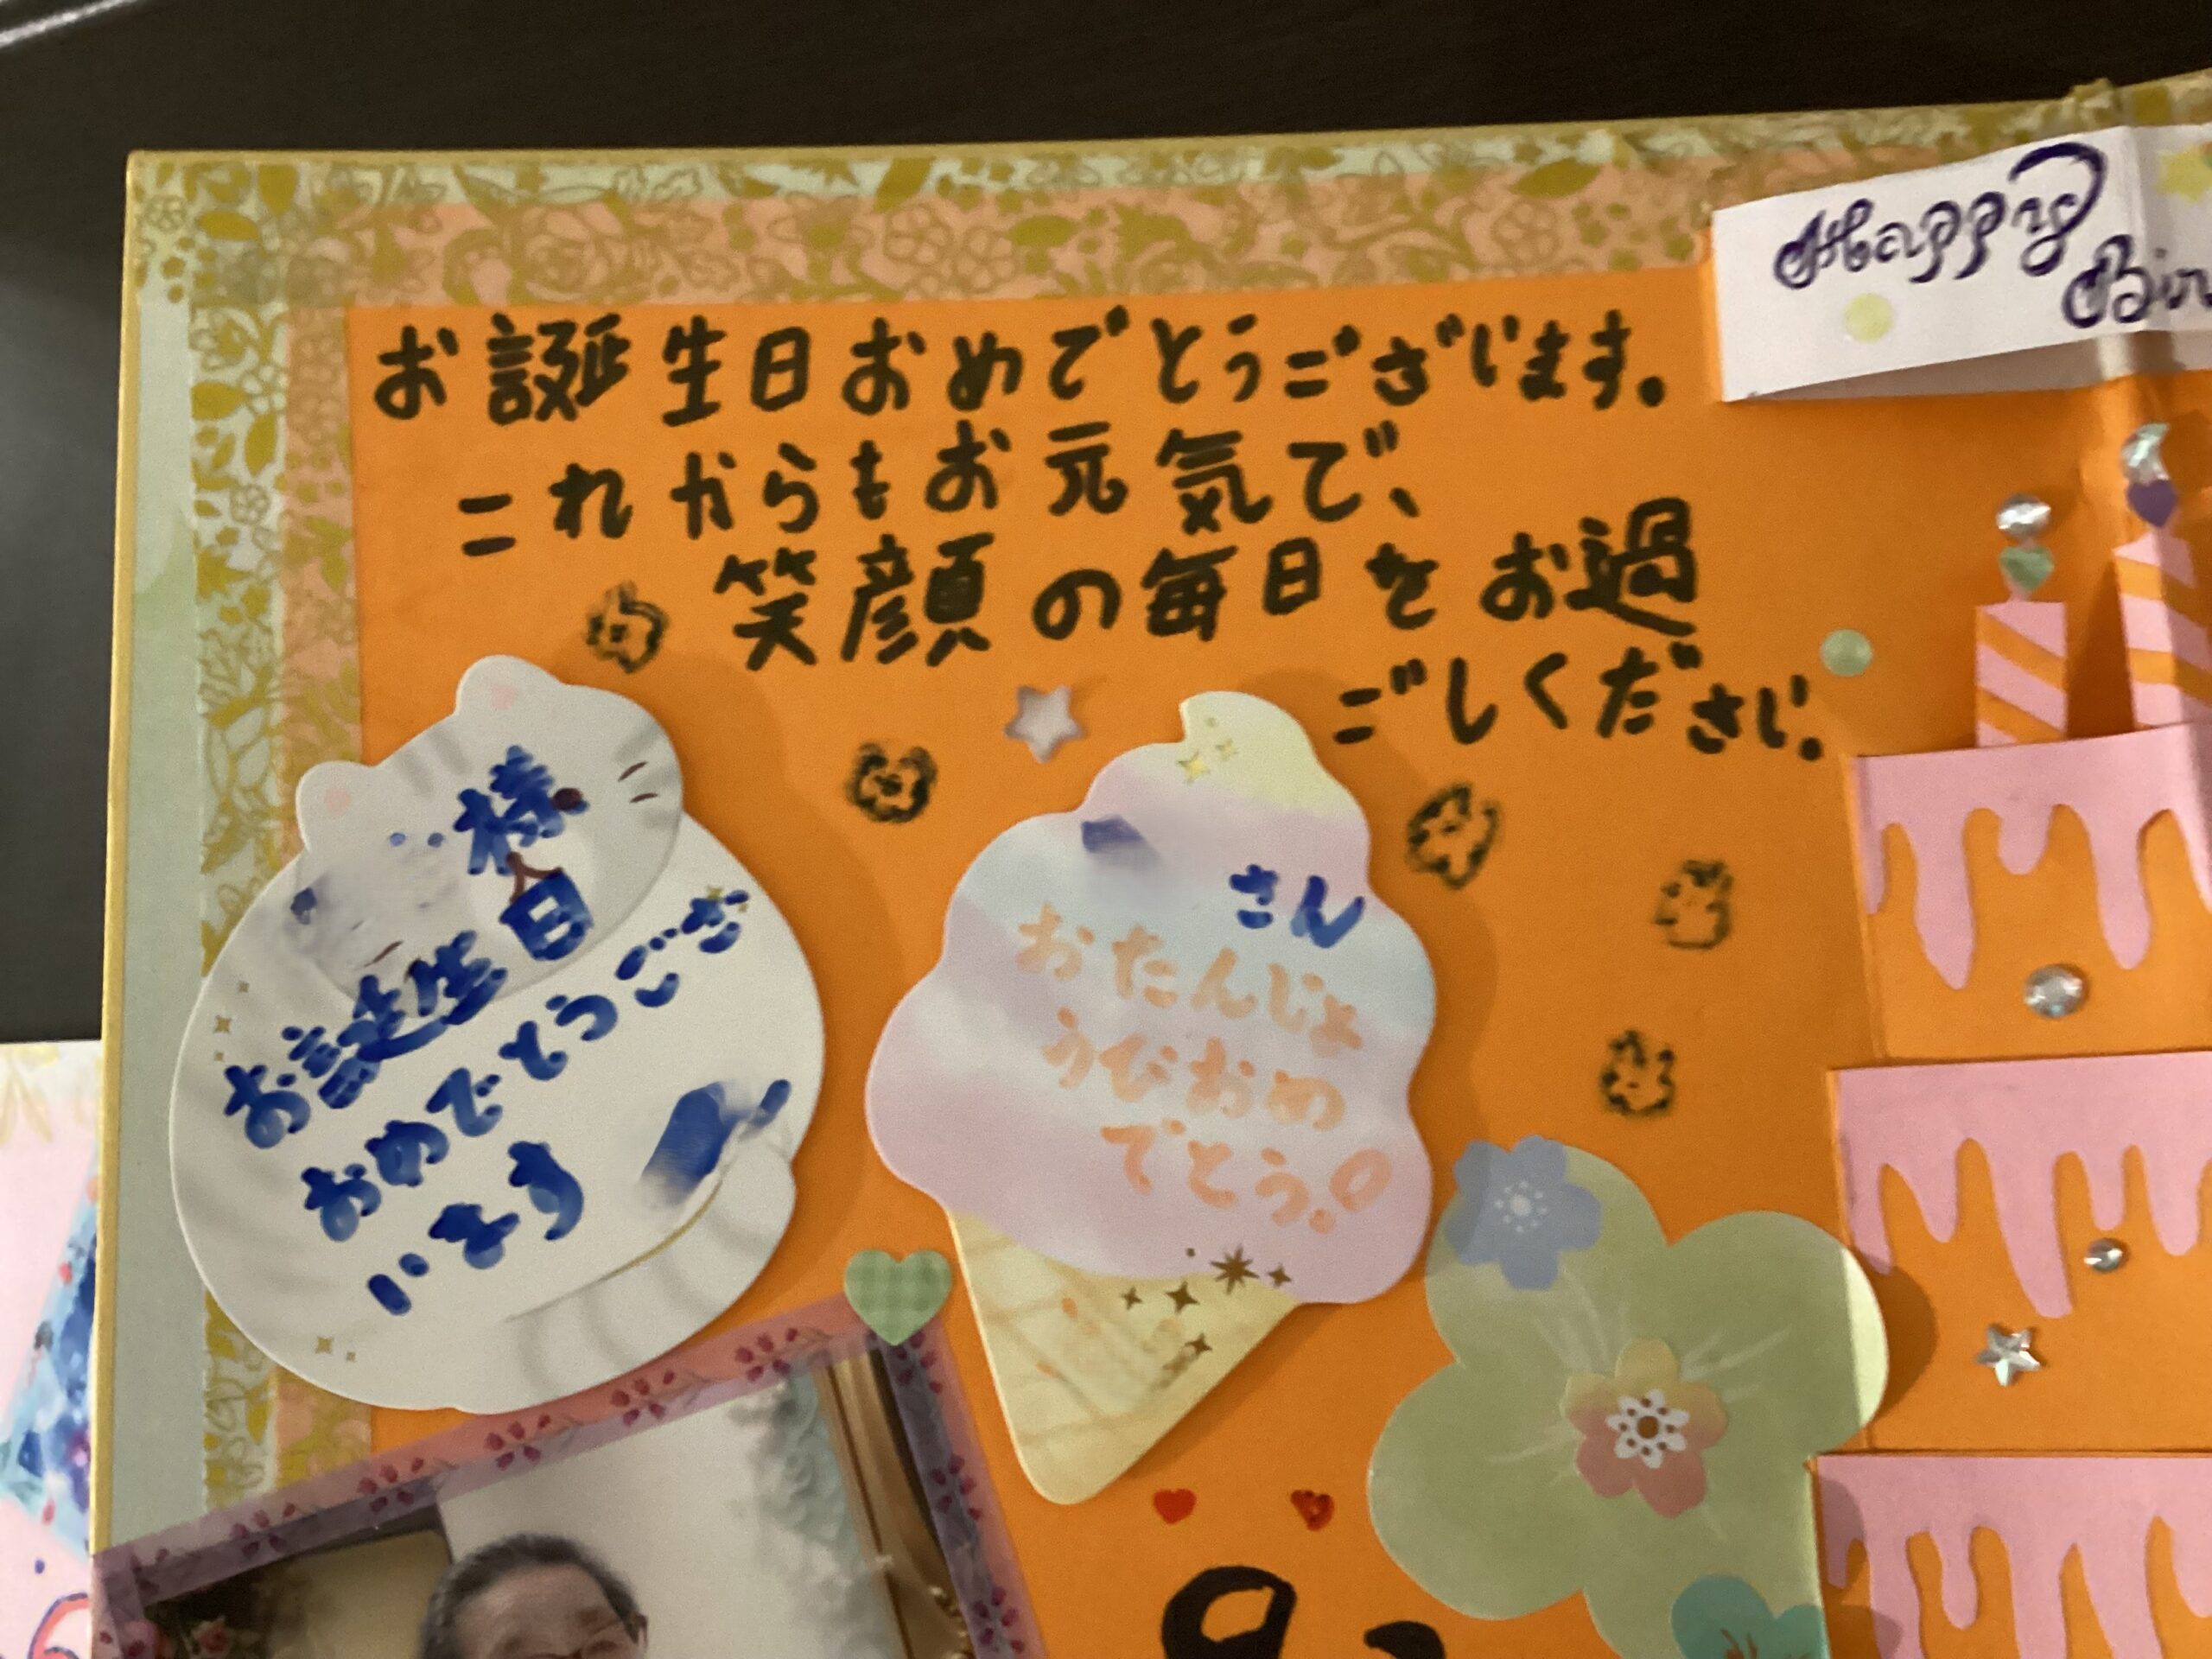 お誕生日おめでとうございます。
これからもお元気で、
笑顔の毎日をお過
ごしください。
Happy
Bir
様
お誕生日
おめでとうござ
います
さん
おたんじょ
うびおめ
でとう!